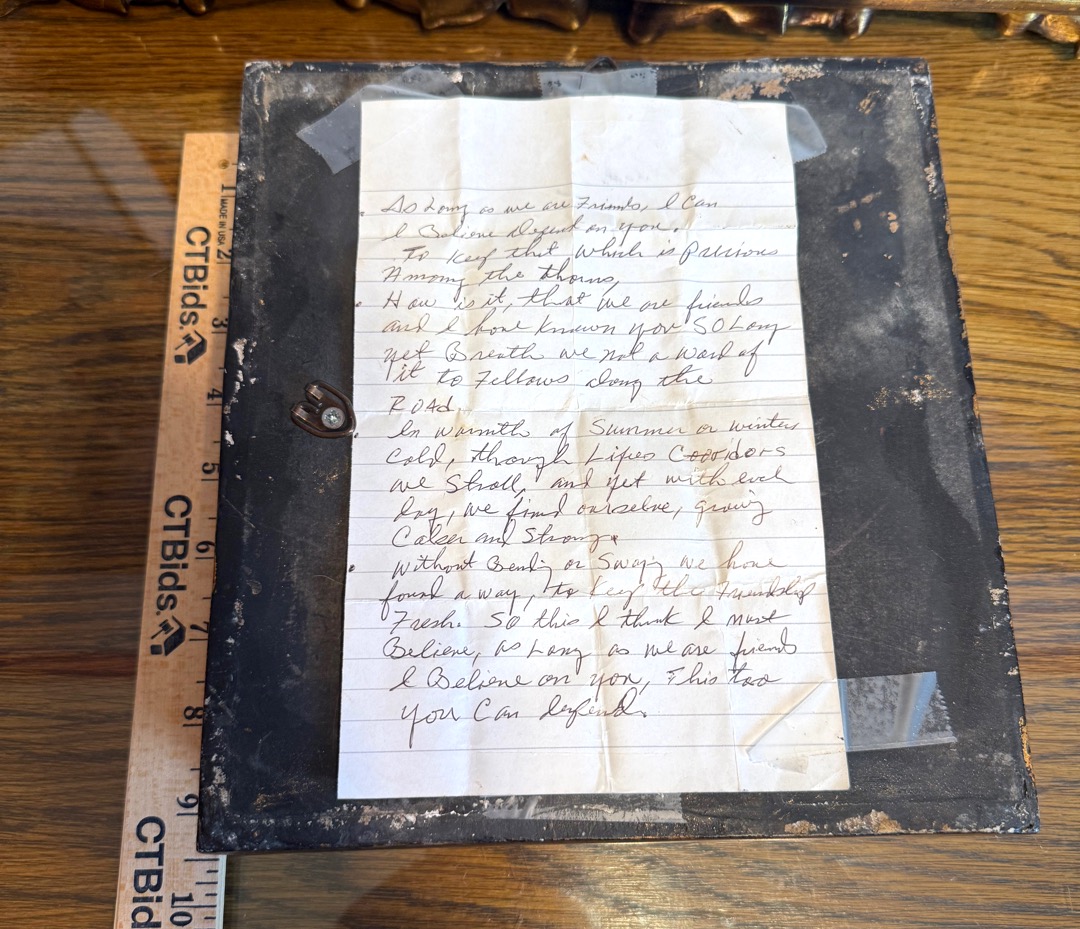 As Long as we are Friends, I Can
I Believe Depend on you.
To keep that which is precious
Among the thorns,
How is it, that we are friends
and I have known you SO Long
yet Breath we not a word of
it to Fellows along the
ROAd.
In warmth of Summer or winters
Cold, through Lifes Corridors
we Stroll, and yet with each
day, we find ourselve, growing
and Strong.
Without Bending or Swaying we have
found a way, to keep this Friendship
Fresh. SO this I think I must
Believe, as Long as we are friends
I Believe on you, This too
you Can depend.
1 MADE IN USA
2
3
4
5
6
7
8
9
10
CTBids.
CTBids.
CTBid